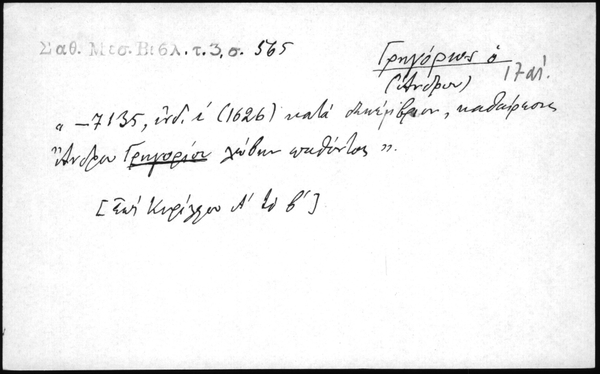 Σαθ. Μεσ. Βιβλ. τ. 3, σ. 565
Γρηγόριος ὁ
(Ἄνδρου)
17 αἰ.
"—7135, ἰνδ. ι´ (1626) κατὰ δεκέμβριον, καθαίρεσις
Ἄνδρου Γρηγορίου παθόντος".
[Ἐπὶ Κυρίλλου Α´ τὸ β´]